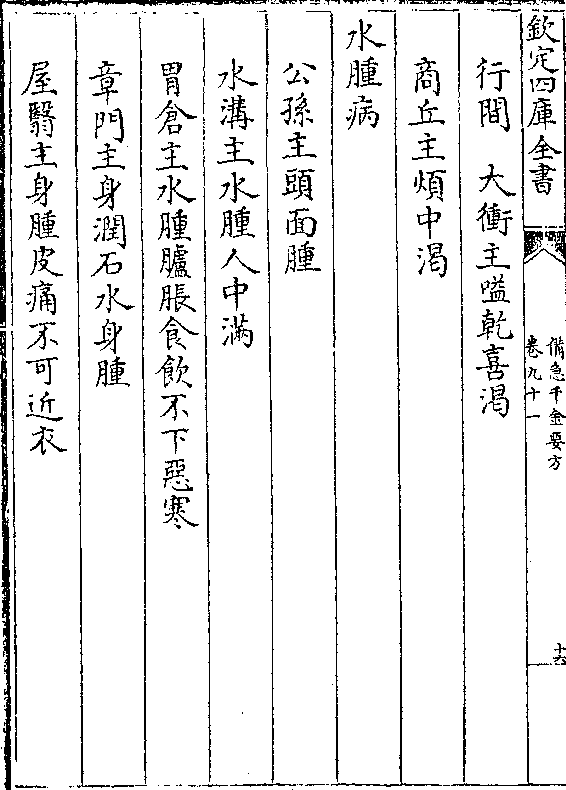 欽定四庫全書
備急千金要方
卷九十一
十六
行間　大衝主嗌乾喜渴
商丘主煩中渴
水腫病
公孫主頭面腫
水溝主水腫人中滿
胃倉主水腫臚脹食飲不下惡寒
章門主身潤石水身腫
屋翳主身腫皮痛不可近衣